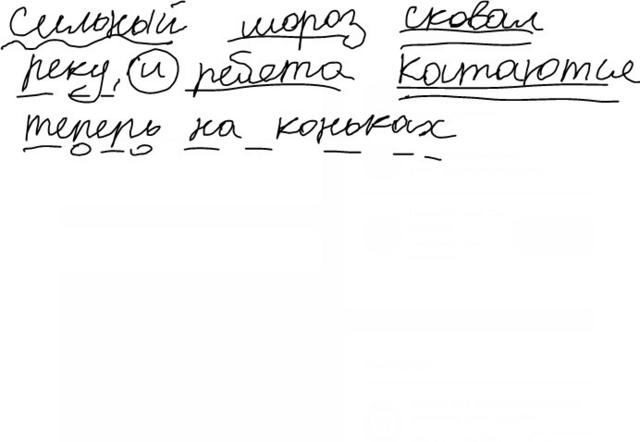 Сильный мороз сковал
реку, и ребята катаются
теперь на коньках